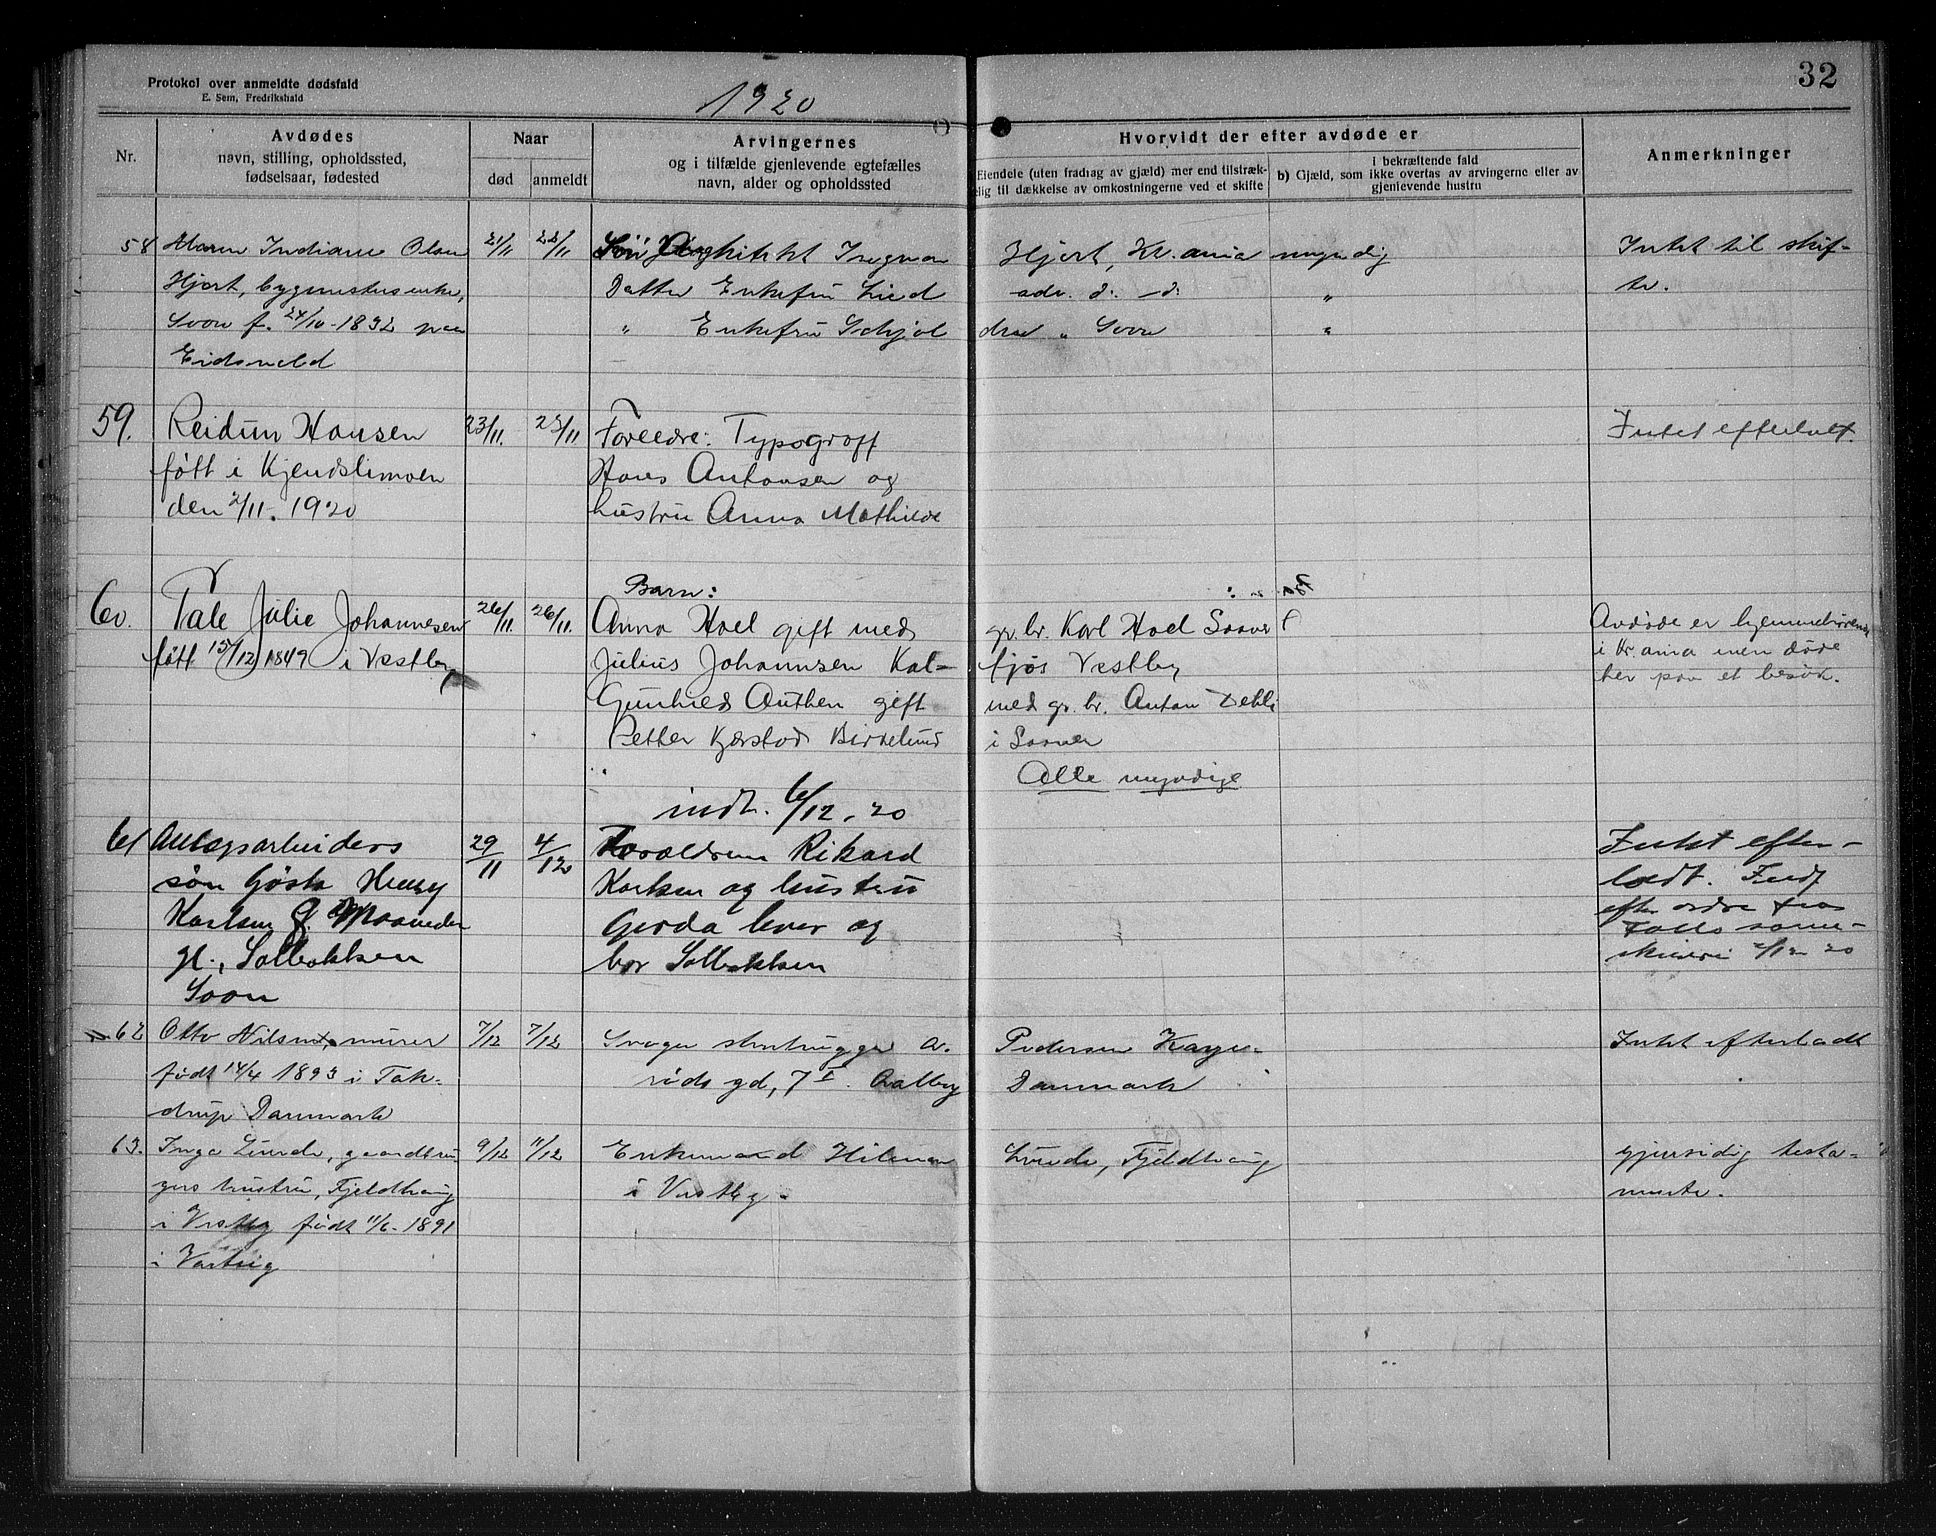 Protokol over anmeldte dødsfald
E. Sem, Fredrikshald
1920
32
Nr.
Avdødes
navn, stilling, opholdssted,
fødselsaar, fødested
Naar
død
anmeldt
Arvingernes
og i tilfælde gjenlevende egtefælles
navn, alder og opholdssted
Hvorvidt der efter avdøde er
Eiendele (uten fradrag av gjæld) mer end tilstræk-
elig til dækkelse av omkostningerne ved et skifte
i bekræftende fald
b) Gjæld, som ikke overtas av arvingerne eller av
gjenlevende hustru
Anmerkninger
58
Maren Indiane Olsen
Hjort, bygmesterenke,
Soon f. 24/10-1832 paa
Eidsvold
21/11
22/11
Søn Arkitekt
Hjort, Kr.ania myndig
Datter Enkefru Lied
adr. d. -d. "
" Enkefru Schjøl
drad " Soon "
Intet til skif-
te.
59.
Reidun Hansen
født i Kjendslimoen
den 2/11. 1920
23/11.
25/11
Foreldre: Typograff
Hans Antonsen og
hustru Anna Mathilde
Intet efterlatt.
60.
Tale Julie Johannesen
født 15/12 1849 i Vestby
26/11.
26/11.
Barn:
Anna Hoel gift med
gr. br. Karl Hoel Saaner
Julius Johannsen Kal-
fjøs Vestby
Gunhild Authen gift
med gr. br. Anton Dehli
Petter Kjerstad Birkelund
i Saaner
Alle myndige
Avdøde er hjemmehørende
i Kr.ania men døde
her paa et besøk.
indt. 6/12. 20
61
Anlægsarbeiders
søn Gøsta Henry
Karlsen 9 Maaneder
gl., Solbakken
Soon
29/11
4/12
Foreldrene Rikard
Karlsen og hustru
Gerda lever og
bor Solbakken
Intet efter-
ladt. Indf
efter ordre fra
Follo sore-
skriveri /12 20
62
Otto Nilsen, murer
født 14/4 1893 i Tak-
drup Danmark
7/12
7/12
Svoger stenhugger A.
Pedersen Kaye-
røds gd, 7 I. Aalborg
Danmark
Intet efterladt
63.
Inga Lunde, gaardbru-
gers hustru, Fjeldhaug
i Vestby født 11/6-1891
i Varteig
9/12
11/12
Enkemand Hilmar
Lunde, Fjeldhaug
i Vestby.
gjensidig testa-
mente.